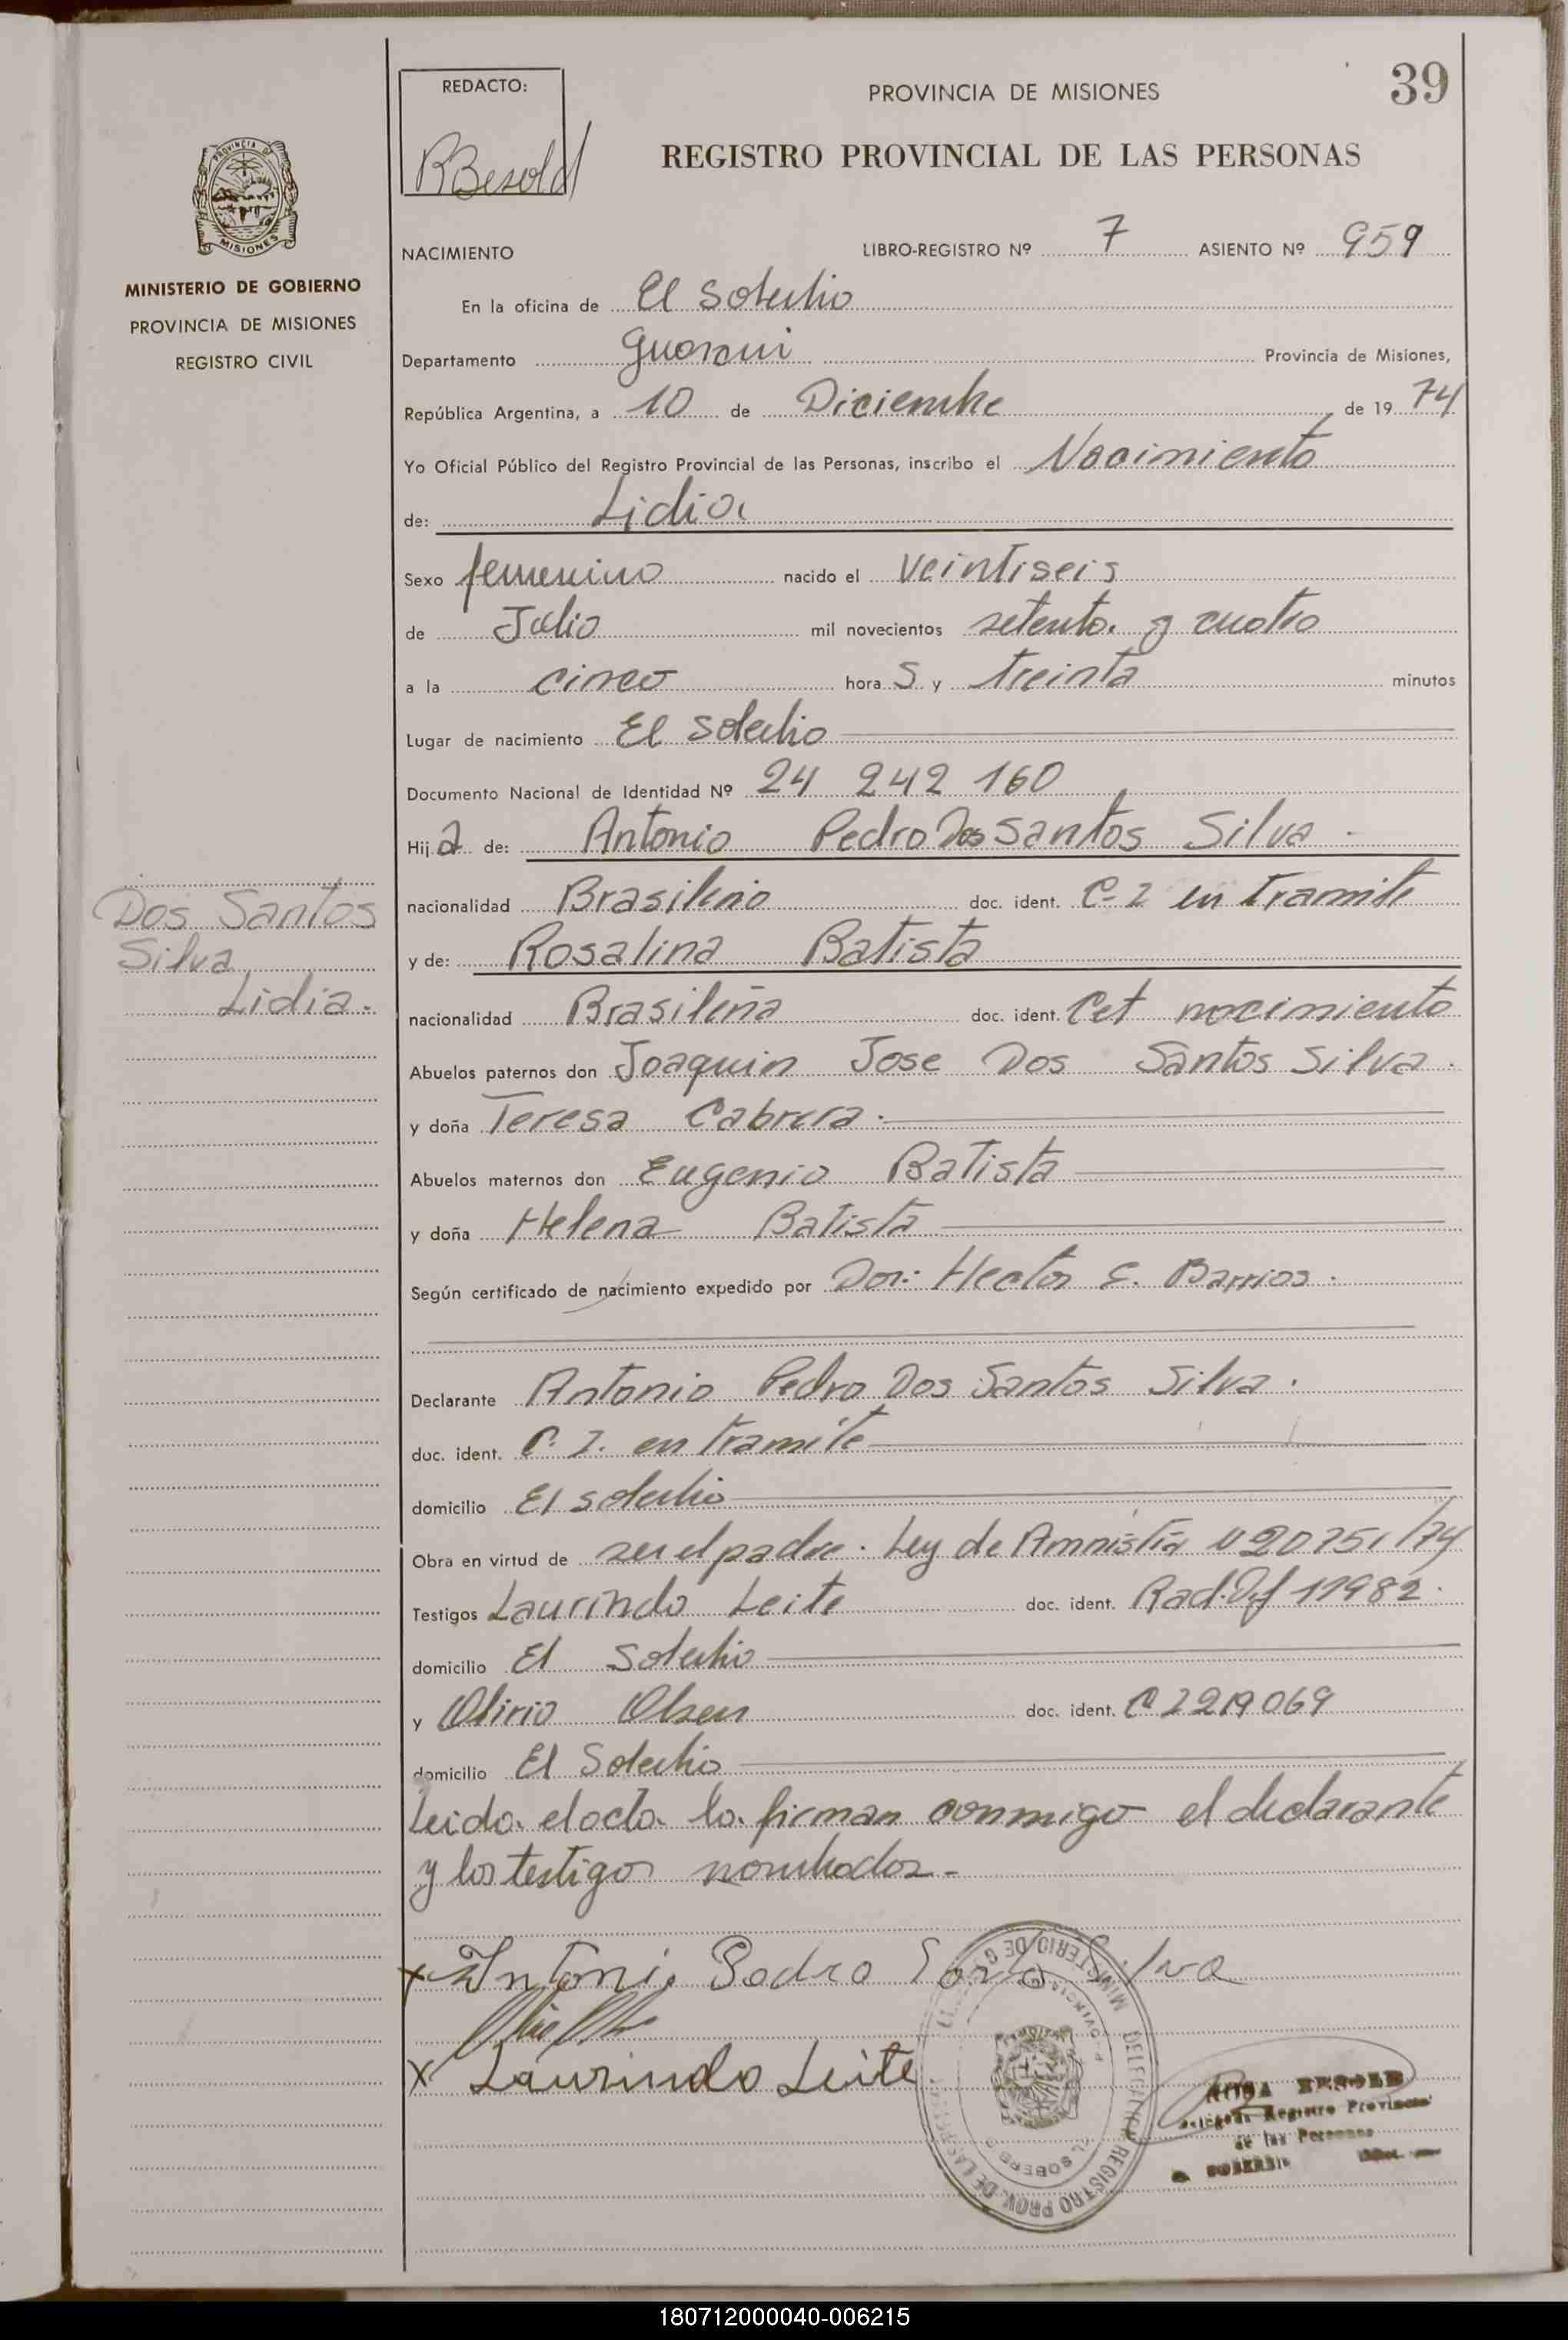 39
REDACTO:
RBesold
PROVINCIA DE MISIONES
REGISTRO PROVINCIAL DE LAS PERSONAS
PROVINCIA DE
MISIONES
MINISTERIO DE GOBIERNO
PROVINCIA DE MISIONES
REGISTRO CIVIL
NACIMIENTO LIBRO-REGISTRO Nº 7 ASIENTO Nº 959
En la oficina de El Soberbio
Departamento Guarani Provincia de Misiones,
República Argentina, a 10 de Diciembre de 19 74
Yo Oficial Público del Registro Provincial de las Personas, inscribo el Nacimiento
de: Lidia
Sexo femenino nacido el veintiseis
de Julio mil novecientos setenta y cuatro
a la cinco hora s y treinta minutos
Lugar de nacimiento El Soberbio
Documento Nacional de Identidad Nº 24 242 160
Hij a de: Antonio Pedro Dos Santos Silva
nacionalidad Brasileño doc. ident. C. I en tramite
y de: Rosalina Batista
nacionalidad Brasileña doc. ident. Cet nacimiento
Dos Santos
Silva
Lidia.
Abuelos paternos don Joaquin Jose Dos Santos Silva.
y doña Teresa Cabrera.
Abuelos maternos don Eugenio Batista
y doña Helena Batista
Según certificado de nacimiento expedido por Don: Hector E. Barrios.
Declarante Antonio Pedro Dos Santos Silva.
doc. ident. C. I. en tramite
domicilio El soberbio
Obra en virtud de ser el padre. Ley de Amnistia 20751/74
Testigos Laurindo Leite doc. ident. Rad. Def 11982.
domicilio El Soberbio
y Olirio Olsen doc. ident. C I 219069
domicilio El Soberbio
Leida el acta la firman conmigo el declarante
y los testigos nombrados.-
x Antonio Pedro Santo Silva
x Laurindo Leite
MINISTERIO DE
DELEGACION REGISTRO PROV. DE LAS PERSONAS
PROVINCIA
EL SOBERBIO
ROSA BESOLD
Registro Provincial
de las Personas
SOBERBIO
180712000040-006215